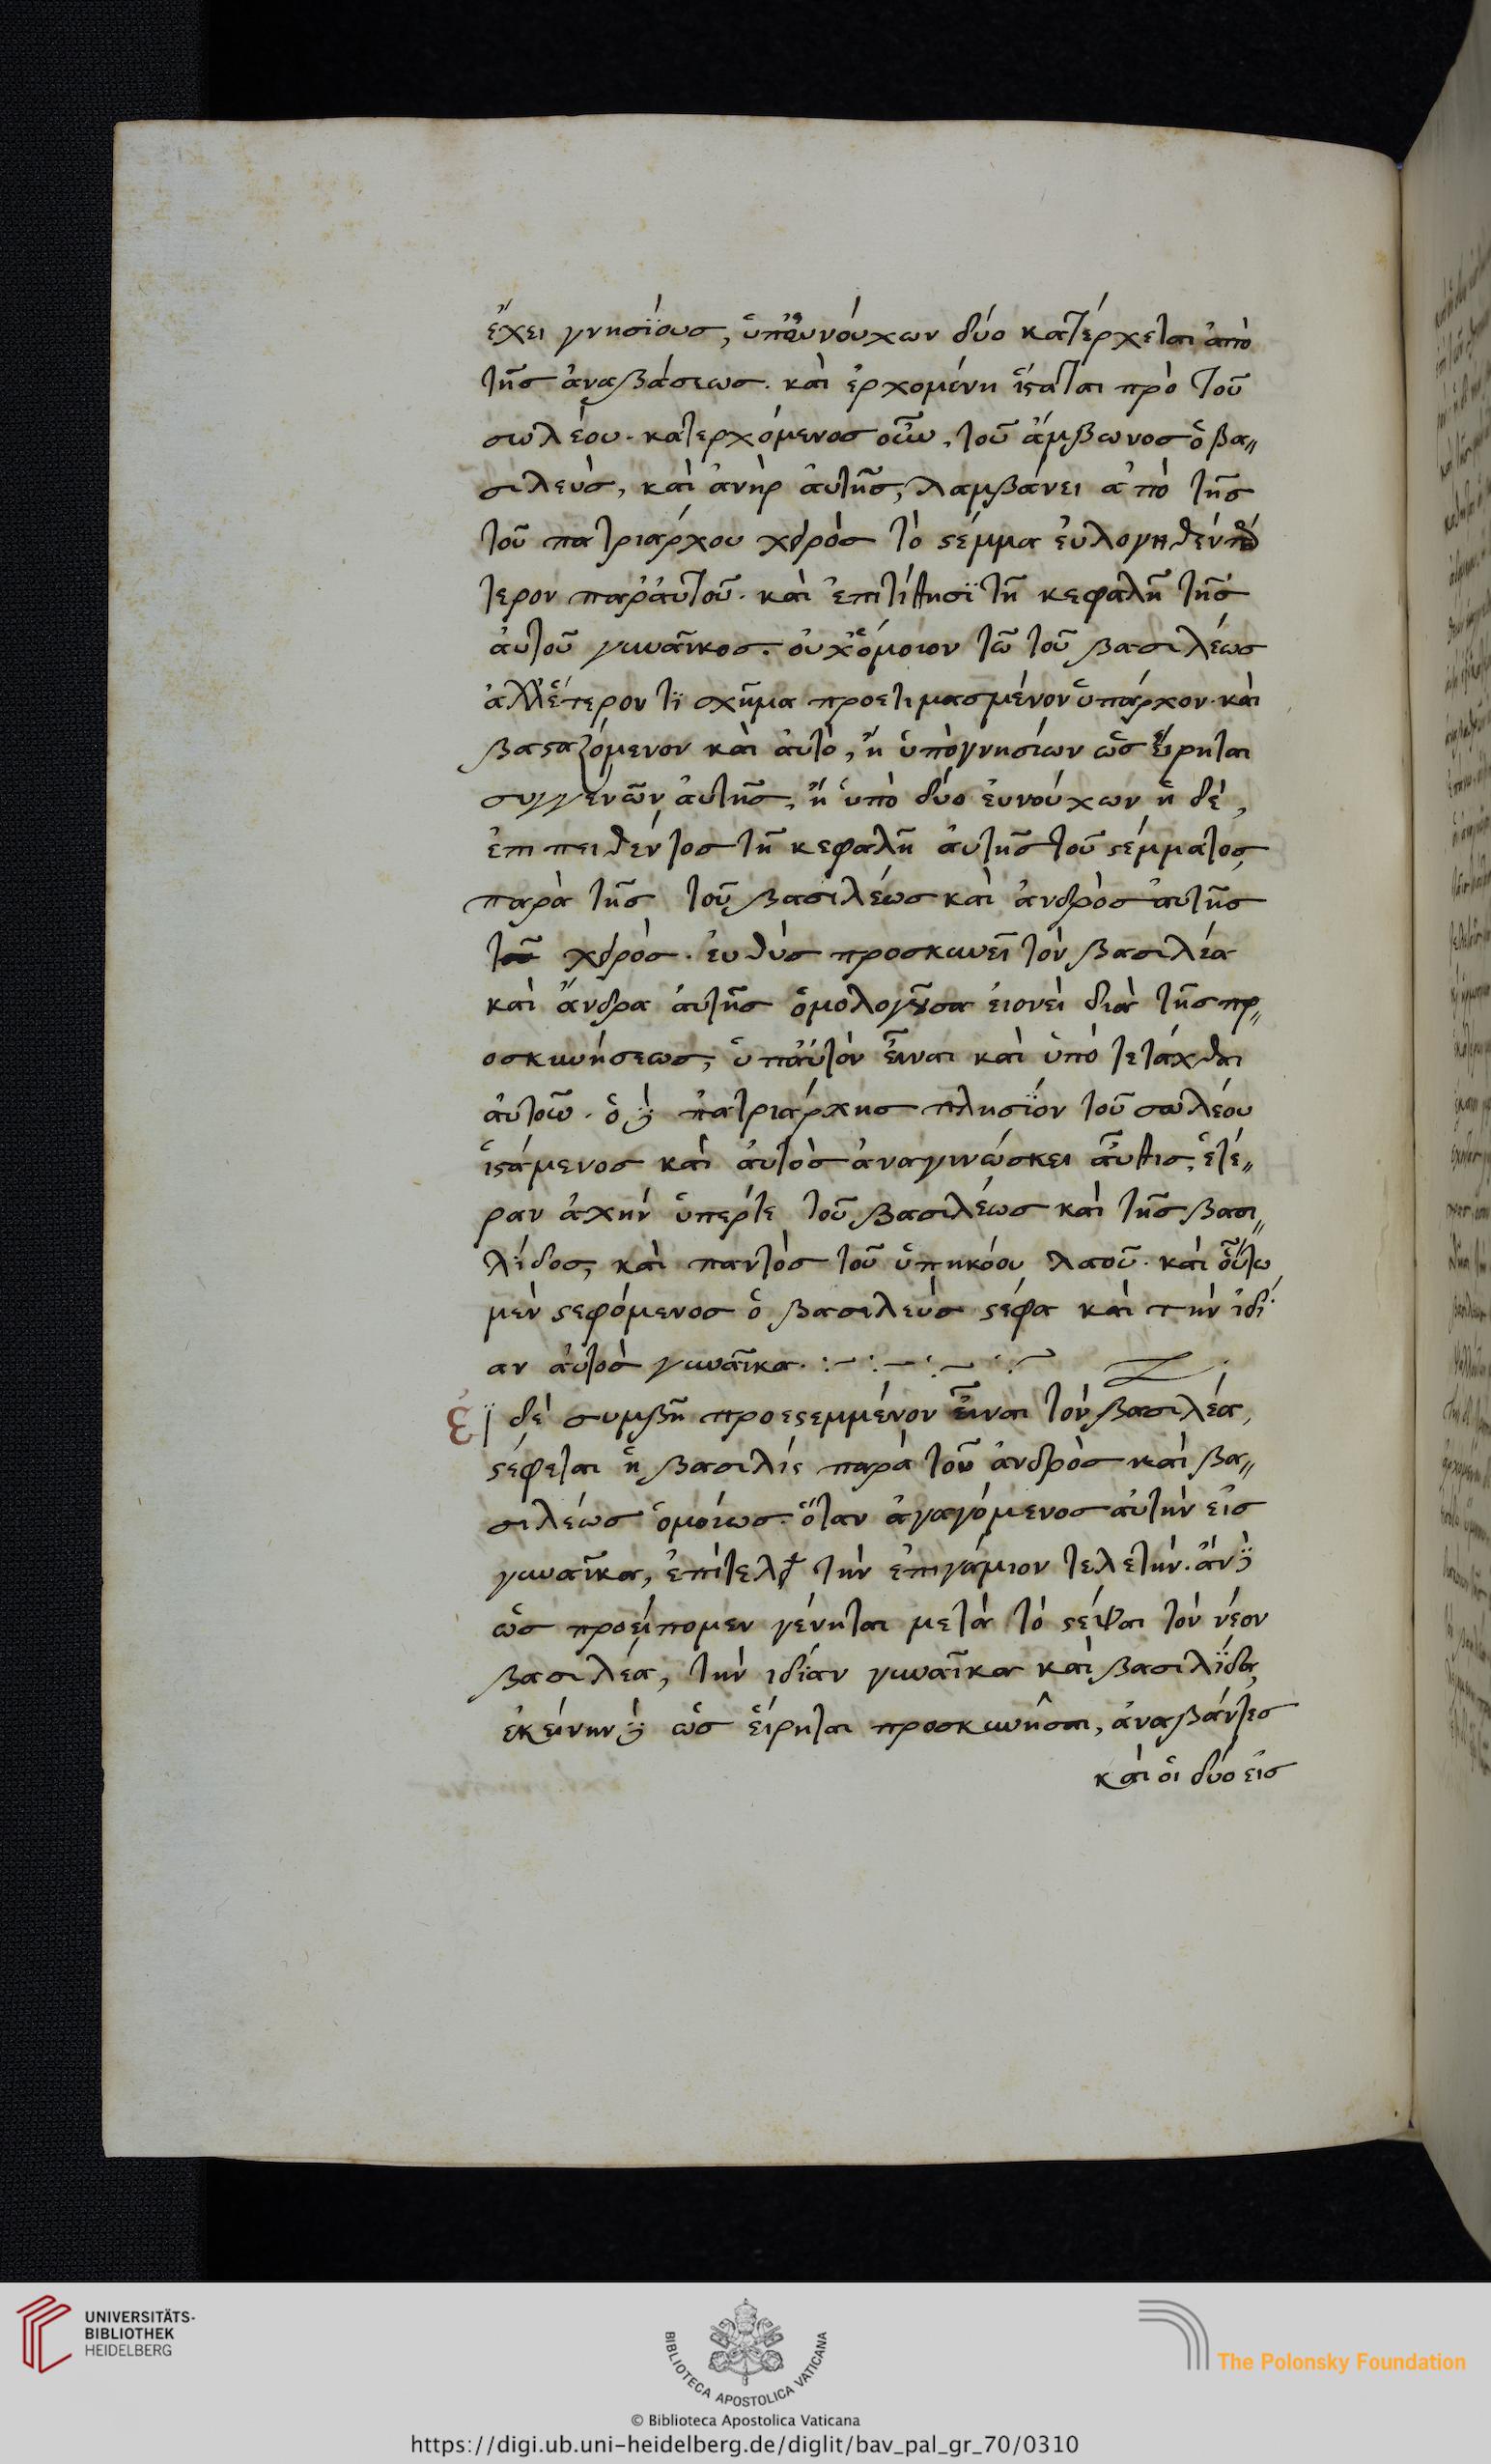 ἔχει γνησΐους, ὑπὀευνούχων δύο κατέρχεται ἀπὸ
τῆς ἀναβάσεως. καὶ ἐρχομένη ἵσταται πρὸ τοῦ
σωλέου. κατερχόμενος οὖν, τοῦ ἄμβωνος ὁ βα〃
σιλεὺς, καὶ ἀνὴρ ἀυτῆς, λαμβάνει ἀπὸ τῆς
τοῦ πατριάρχου χειρὸς τὸ στέμμα ἐυλογηθὲν πρό
τερον παρἀυτοῦ. καὶ ἐπιτίθησϊ τῆ κεφαλῆ τῆς
ἀυτοῦ γυναῖκος. οὐχὅμοιον τῶ τοῦ βασιλέως
ἀλλἕτερον τϊ σχῆμα προετιμασμένον ὑπάρχον. καὶ
βασταζόμενον καὶ ἀυτὸ, ἢ ὑπὸγνησίων ὡς ἔιρηται
συγγενῶν ἀυτῆς, ἢ ὑπὸ δύο ἐυνούχων ἡ δὲ,
ἐπιπειθέντος τῆ κεφαλῆ ἀυτῆς τοῦ στέμματος,
παρὰ τῆς τοῦ βασιλέως καὶ ἀνδρὸς ἀυτῆς
χειρὸς. ἐυθὺς προσκυνεῖ τὸν βασιλέα
καὶ ἄνδρα ἀυτῆς ὁμολογοῦσα ἑιονεὶ διὰ τῆς πρ〃
οσκυνήσεως, ὑπἀυτὸν εἶναι καὶ ὑπὸ τετάχθαι
ἀυτοῦ. ὁ δὲ πατριάρχης πλησΐον τοῦ σωλέου
ἱστάμενος καὶ ἀυτὸς ἀναγινώσκει αὖθις, ἑτέ〃
ραν ἐυχὴν ὑπέρτε τοῦ βασιλέως καὶ τῆς βασι〃
λίδος, καὶ παντὸς τοῦ ὑπηκόου λαοῦ. καὶ οὕτω
μὲν στεφόμενος ὁ βασιλεὺς στέφει καὶ τὴν ἰδί
αν ἀυτὸς γυναῖκα.
Ἐϊ δὲ συμβῆ προεστεμμένον εἶναι τὸν βασιλέα,
στέφεται ἡ βασιλὶς παρὰ τοῦ ἀνδρὸς καὶ βα〃
σιλέως ὁμοίως. ὅταν ἀγαγόμενος αὐτὴν εἰς
γυναῖκα, ἐπιτελεῖ τὴν ἐπιγάμιον τελετὴν. ἂν δὲ
ὡς προείπομεν γένηται μετὰ τὸ στέψαι τὸν νέον
βασιλέα, τὴν ιδίαν γυναῖκα καὶ βασιλΐδα,
ἐκείνην δὲ ὡς ἔιρηται προσκυνῆσαι, ἀναβάντες
καὶ ὁι δύο εἰς
UNIVERSITÄTS-
BIBLIOTHEK
HEIDELBERG
BIBLIOTECA APOSTOLICA VATICANA
The Polonsky Foundation
© Biblioteca Apostolica Vaticana
https://digi.ub.uni-heidelberg.de/diglit/bav_pal_gr_70/0310